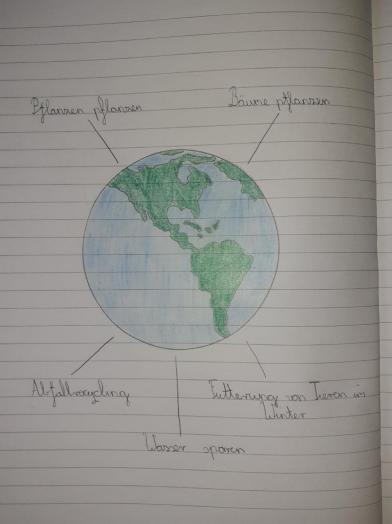 Pflanzen pflanzen
Bäume pflanzen
Abfallrecycling
Futterung von Tieren im
Winter
Wasser sparen